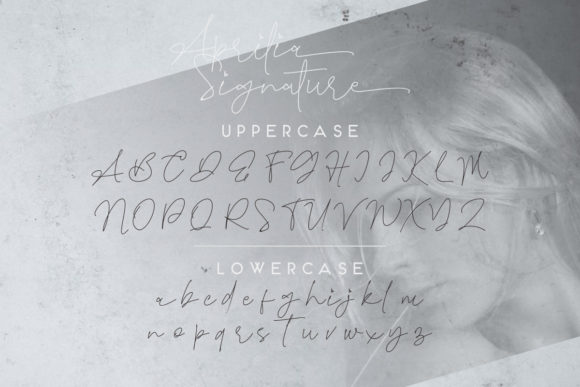 Aprilia
Signature
UPPERCASE
A B C D E F G H I J K L M
N O P Q R S T U V W X Y Z
LOWERCASE
a b c d e f g h i j k l m
n o p q r s t u v w x y z